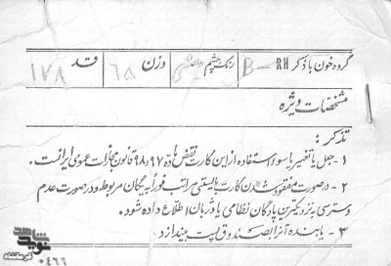 گروه خون با ذکر RH B- رنگ چشم میشی وزن ۶۸ قد ۱۷۸
مشخصات ویژه
تذکر :
۱- جعل یا تغییر یا سوء استفاده از این کارت نقض ماده ۹۷ ر ۹۸ قانون مجازات عمومی ایرانست .
۲ - در صورت مفقود شدن کارت بایستی مراتب فوراً به یگان مربوطه و در صورت عدم
دسترسی به نزدیکترین پادگان نظامی یا ژاندارمری اطلاع داده شود .
۳ - یابنده آنرا بصندوق پست بیندازد .
۰۴۶۶